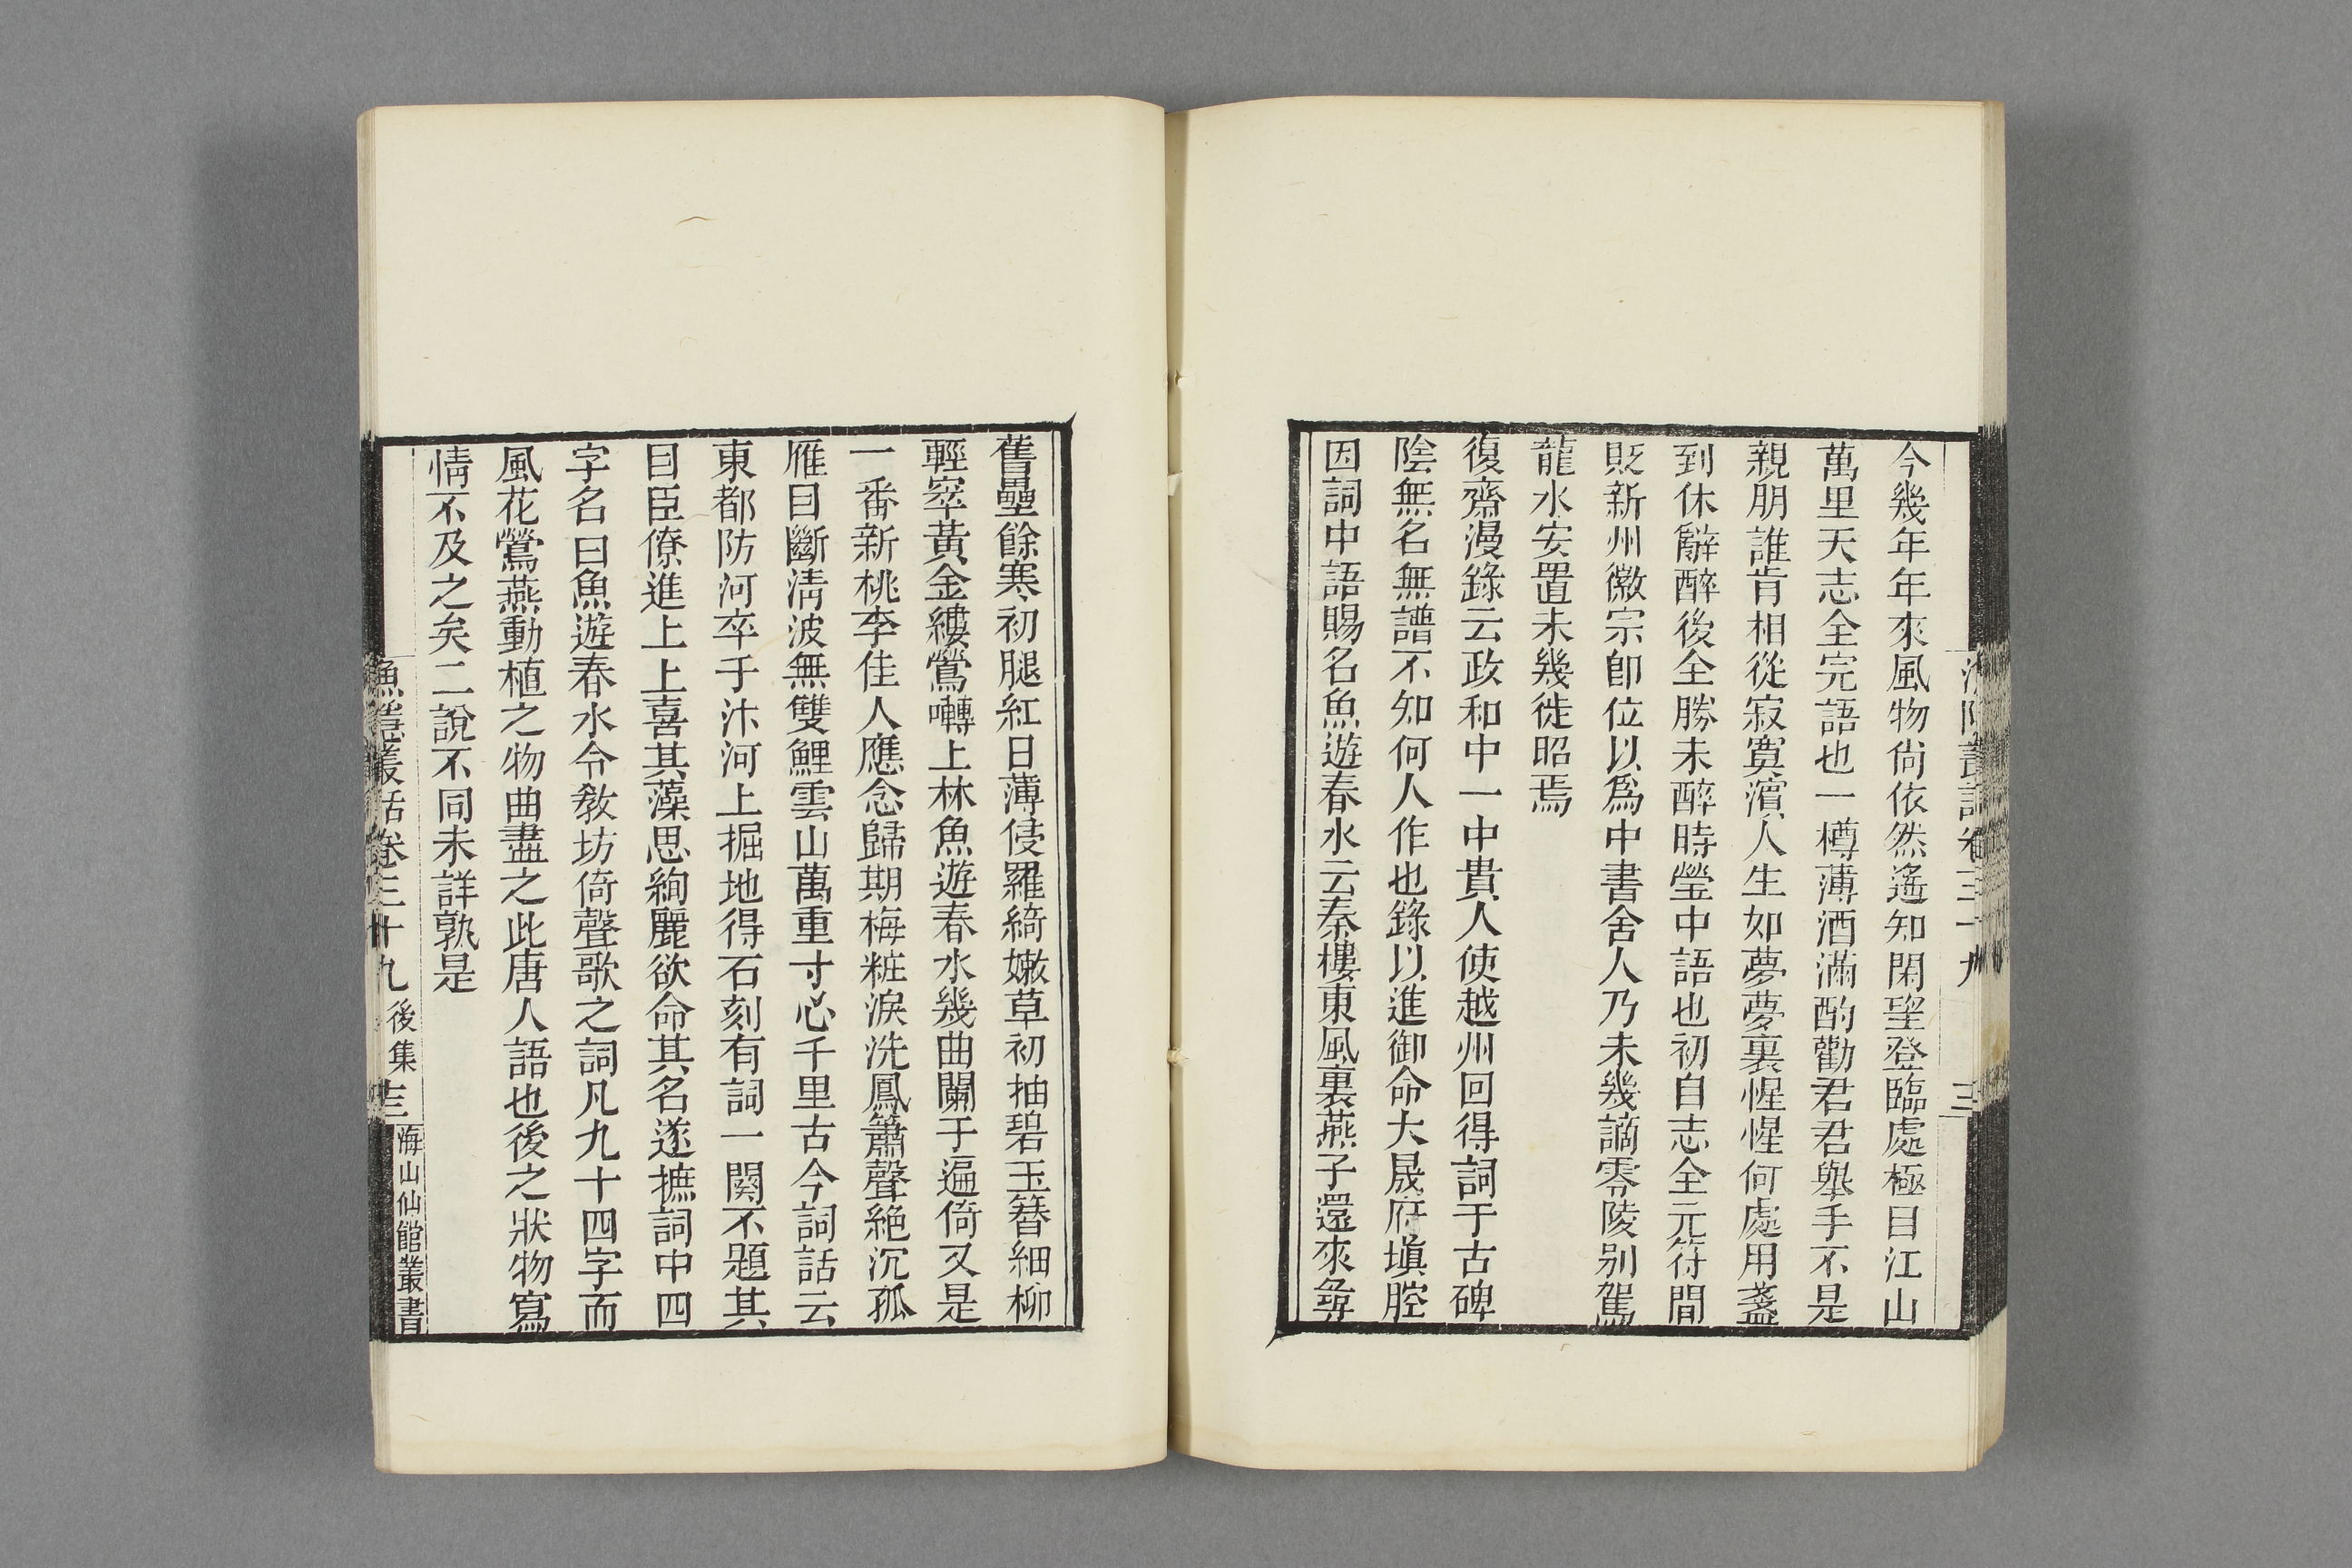 今幾年年來風物尙依然遙知閑望登臨處極目江山
萬里天志全完語也一樽薄酒滿酌勸君君舉手不是
親朋誰肯相從寂寞濱人生如夢夢裏惺惺何處用盞
到休辭醉後全勝未醉時瑩中語也初自志全元符間
貶新州徽宗卽位以爲中書舍人乃未幾謫零陵別駕
龍水安置未幾徙昭焉
復齋漫錄云政和中一中貴人使越州回得詞于古碑
陰無名無譜不知何人作也錄以進御命大晟府塡腔
因詞中語賜名魚遊春水云秦樓東風裏燕子還來尋
舊壘餘寒初腿紅日薄侵羅綺嫩草初抽碧玉簪細柳
輕窣黃金縷鶯囀上林魚遊春水幾曲闌于遍倚又是
一番新桃李佳人應念歸期梅粧淚洗鳳簫聲絕沉孤
雁目斷淸波無雙鯉雲山萬重寸心千里古今詞話云
東都防河卒于汴河上掘地得石刻有詞一闋不題其
目臣僚進上上喜其藻思絢麗欲命其名遂摭詞中四
字名曰魚遊春水令敎坊倚聲歌之詞凡九十四字而
風花鶯燕動植之物曲盡之此唐人語也後之狀物寫
情不及之矣二說不同未詳孰是
漁隱叢話卷三十九 後集 三 海山仙館叢書